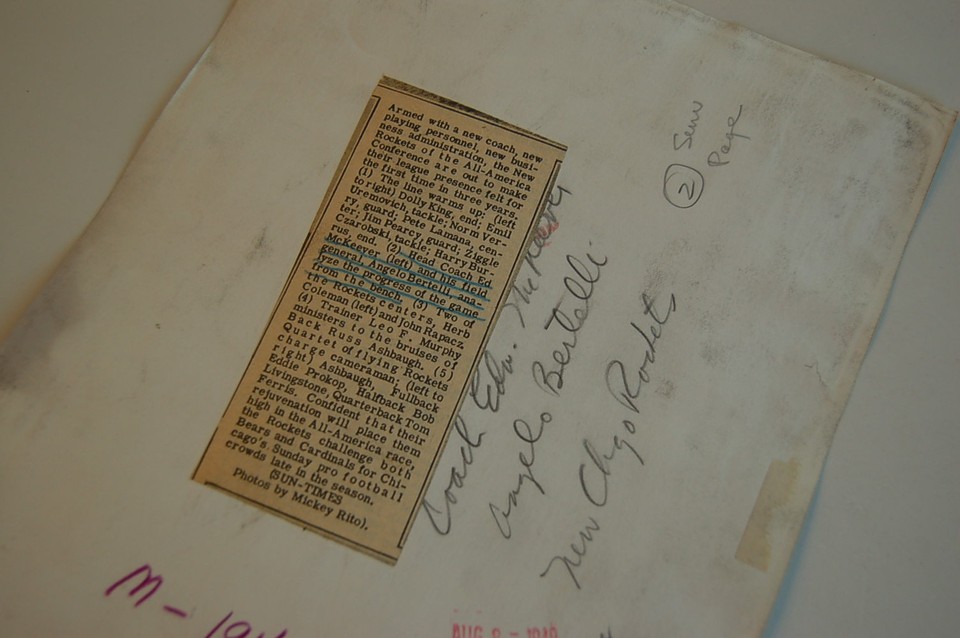 Armed with a new coach, new
playing personnel, new busi-
ness administration, the New
Rockets of the All-America
Conference are out to make
their league presence felt for
the first time in three years.
(1) The line warms up: (left
to right) Dolly King, end; Emil
Uremovich, tackle; Norm Ver-
ry, guard; Pete Lamana, cen-
ter; Jim Pearcy, guard; Ziggie
Czarobski, tackle; Harry Bur-
rus, end. (2) Head Coach Ed
McKeever (left) and his field
general, Angelo Bertelli, ana-
lyze the progress of the game
from the bench. (3) Two of
the Rockets centers, Herb
Coleman (left) and John Rapacz.
(4) Trainer Leo F. Murphy
ministers to the bruises of
Back Russ Ashbaugh. (5)
Quartet of flying Rockets
charge cameraman; (left to
right) Ashbaugh, Fullback
Eddie Prokop, Halfback Bob
Livingstone, Quarterback Tom
Ferris. Confident that their
rejuvenation will place them
high in the All-America race,
the Rockets challenge both
Bears and Cardinals for Chi-
cago's Sunday pro football
crowds late in the season.
(SUN-TIMES
Photos by Mickey Rito).
Coach Edw. McKeever
Angelo Bertelli
New Chgo Rockets
(2) Sunv
Page
M - 194
AUG 9 - 1948